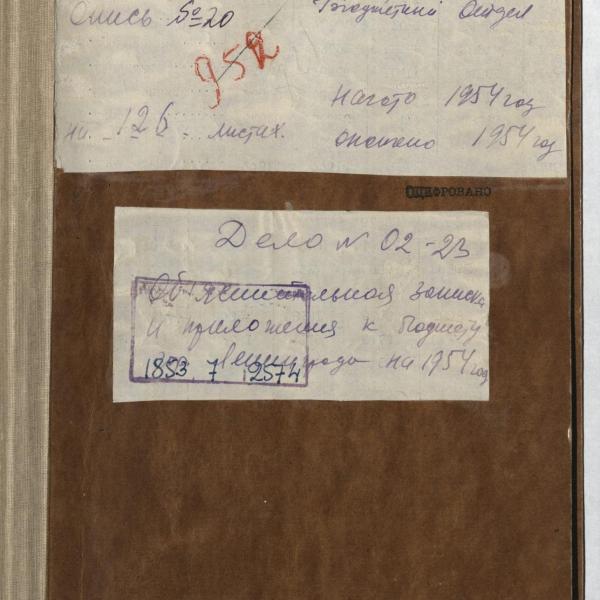 Опись №20
Бюджетный Отдел
952
Начато 1954 год
на 126 листах.
окончено 1954 год
ОЦИФРОВАНО
Дело № 02-23
Объяснительная записка
и приложения к бюджету
Ленинграда на 1954 год
1853 7 12574